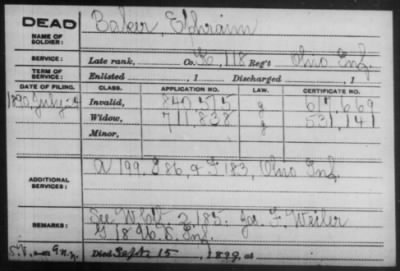 DEAD
NAME OF SOLDIER: Baker, Ephraim
SERVICE: Late rank, Co. G, 118 Reg't Ohio Inf.
TERM OF SERVICE: Enlisted , 1 Discharged , 1
DATE OF FILING. CLASS. APPLICATION NO. LAW. CERTIFICATE NO.
1890 July Invalid, 840,515 g 617,669
Widow, 711,838 g 531,141
Minor,
ADDITIONAL SERVICES: A 199. E 86, & F 183, Ohio Inf.
REMARKS: See W 183. Jas. F. Weiler
G 18 U.S. Inf.
Died Sept. 15, 1899, at